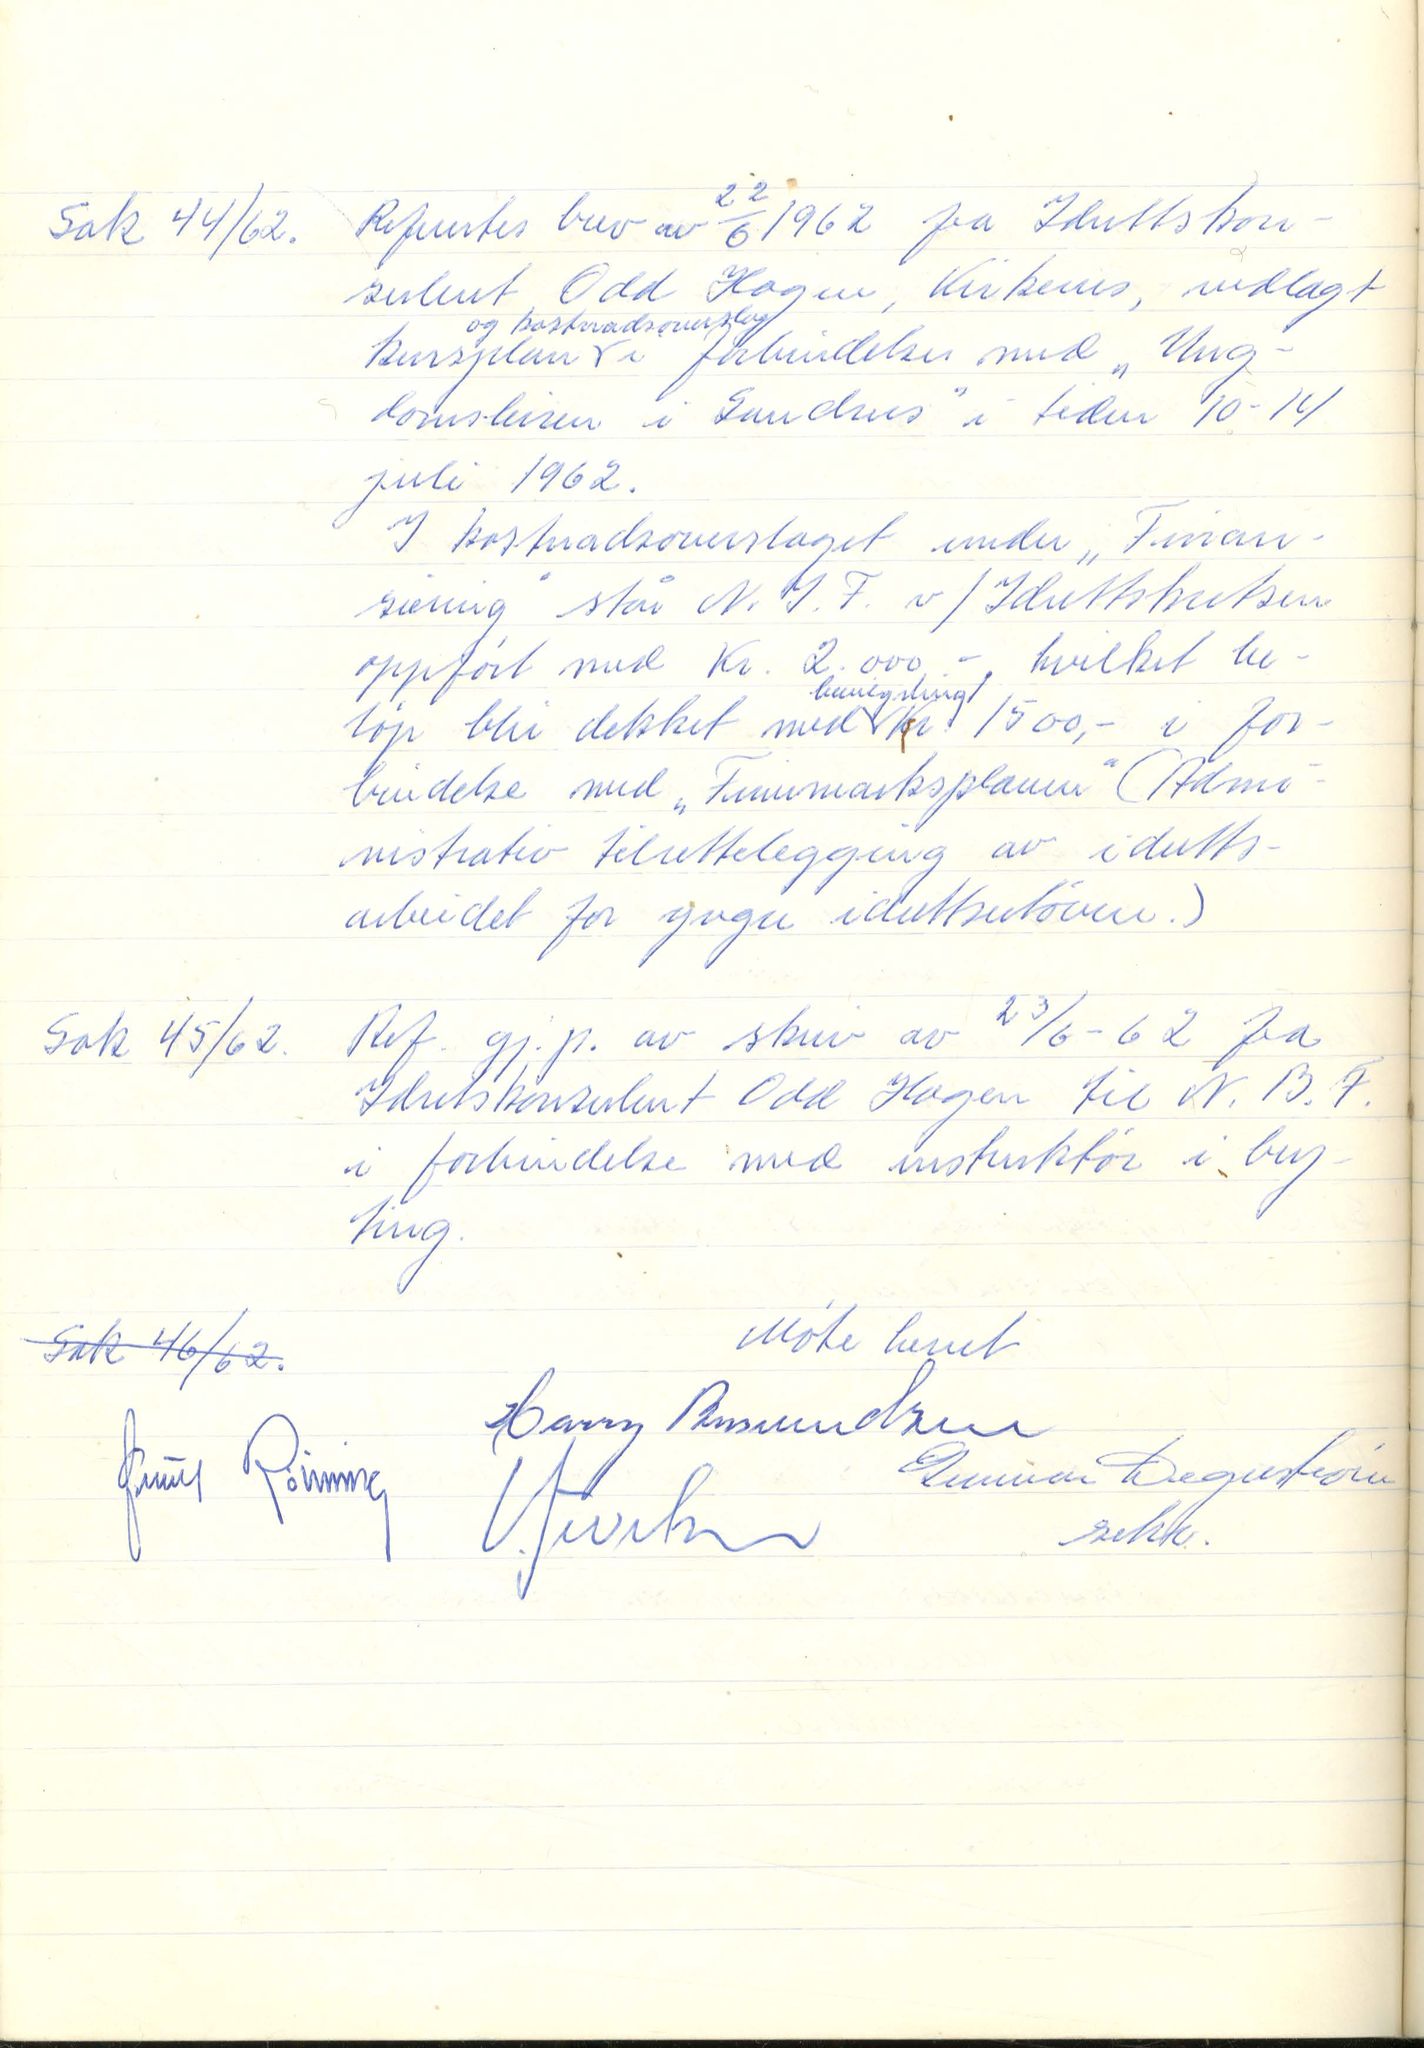 Sak 44/62. Refereres brev av 22/6 1962 fra Idrettskon-
sulent Odd Hagen, Kirkenes, vedlagt
og kostnadsoverslag
kursplan i forbindelse med „Ung-
domsleiren i Sandnes" i tiden 10-14
juli 1962.
I kostnadsoverslaget under „Finan-
siering" står N. I. F. v/Idrettskretsen
oppført med Kr. 2.000,-, hvilket be-
bevilgning
løp blir dekket med Kr. 1500,- i for-
bindelse med „Finnmarksplanen" (Admi-
nistrativ tilrettelegging av idretts-
arbeidet for yngre idrettsutøvere.)
Sak 45/62. Ref. gj.p. av skriv av 23/6-62 fra
Idretskonsulent Odd Hagen til N. B. F.
i forbindelse med instruktør i bry-
ting.
Sak 46/62.
Møte hevet
Harry Amundsen
Rønning
Gunnar
sekr.